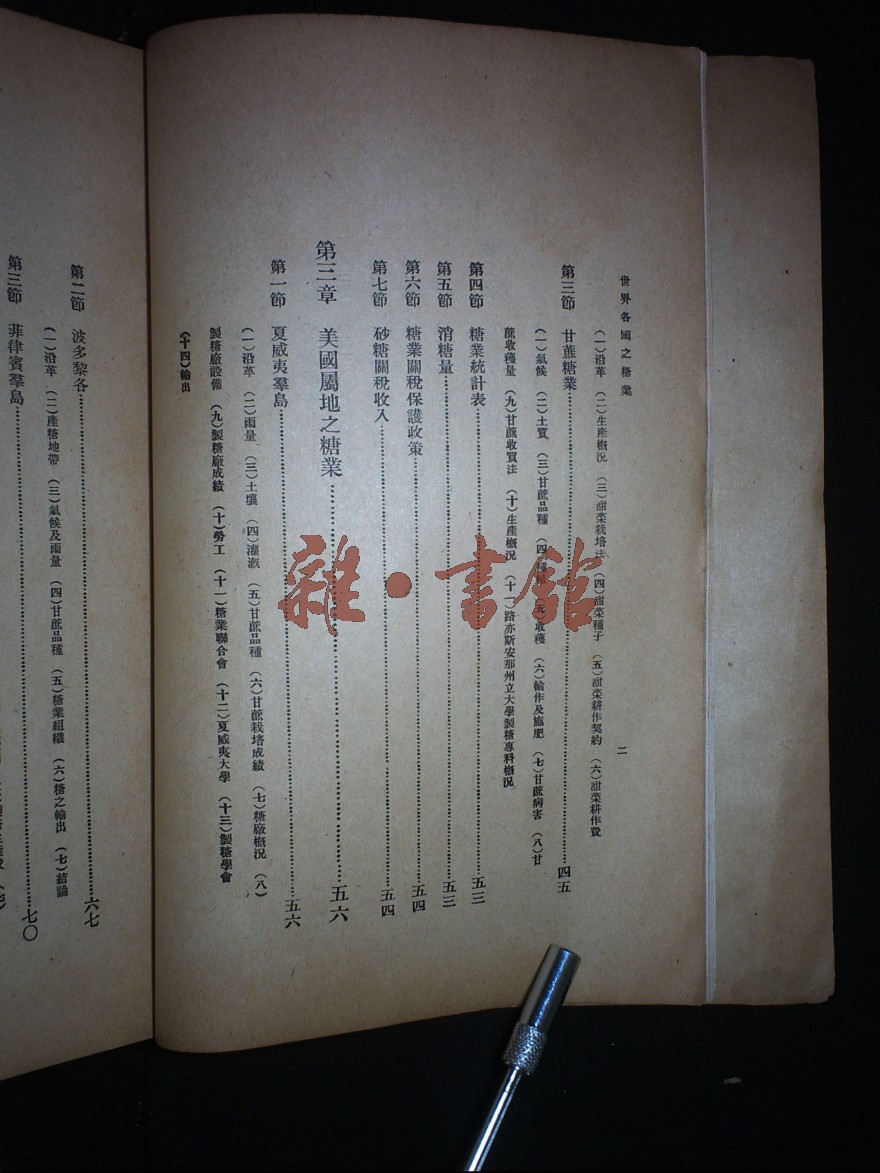 世界各國之糖業
二
（一）沿革 （二）生產概況 （三）甜菜栽培法 （四）甜菜種子 （五）甜菜耕作契約 （六）甜菜耕作費
第三節 甘蔗糖業……四五
（一）氣候 （二）土質 （三）甘蔗品種 （四）種植 （五）收穫 （六）輪作及施肥 （七）甘蔗病害 （八）甘
蔗收穫量 （九）甘蔗收買法 （十）生產概況 （十一）路亦斯安那州立大學製糖專科概況
第四節 糖業統計表……五三
第五節 消糖量……五三
第六節 糖業關稅保護政策……五四
第七節 砂糖關稅收入……五四
第三章 美國屬地之糖業……五六
第一節 夏威夷羣島……五六
（一）沿革 （二）雨量 （三）土壤 （四）灌漑 （五）甘蔗品種 （六）甘蔗栽培成績 （七）糖廠概況 （八）
製糖廠設備 （九）製糖廠成績 （十）勞工 （十一）糖業聯合會 （十二）夏威夷大學 （十三）製糖學會
（十四）輸出
第二節 波多黎各……六七
（一）沿革 （二）產糖地帶 （三）氣候及雨量 （四）甘蔗品種 （五）糖業組織 （六）糖之輸出 （七）結論
第三節 菲律賓羣島……七〇
雜·書館